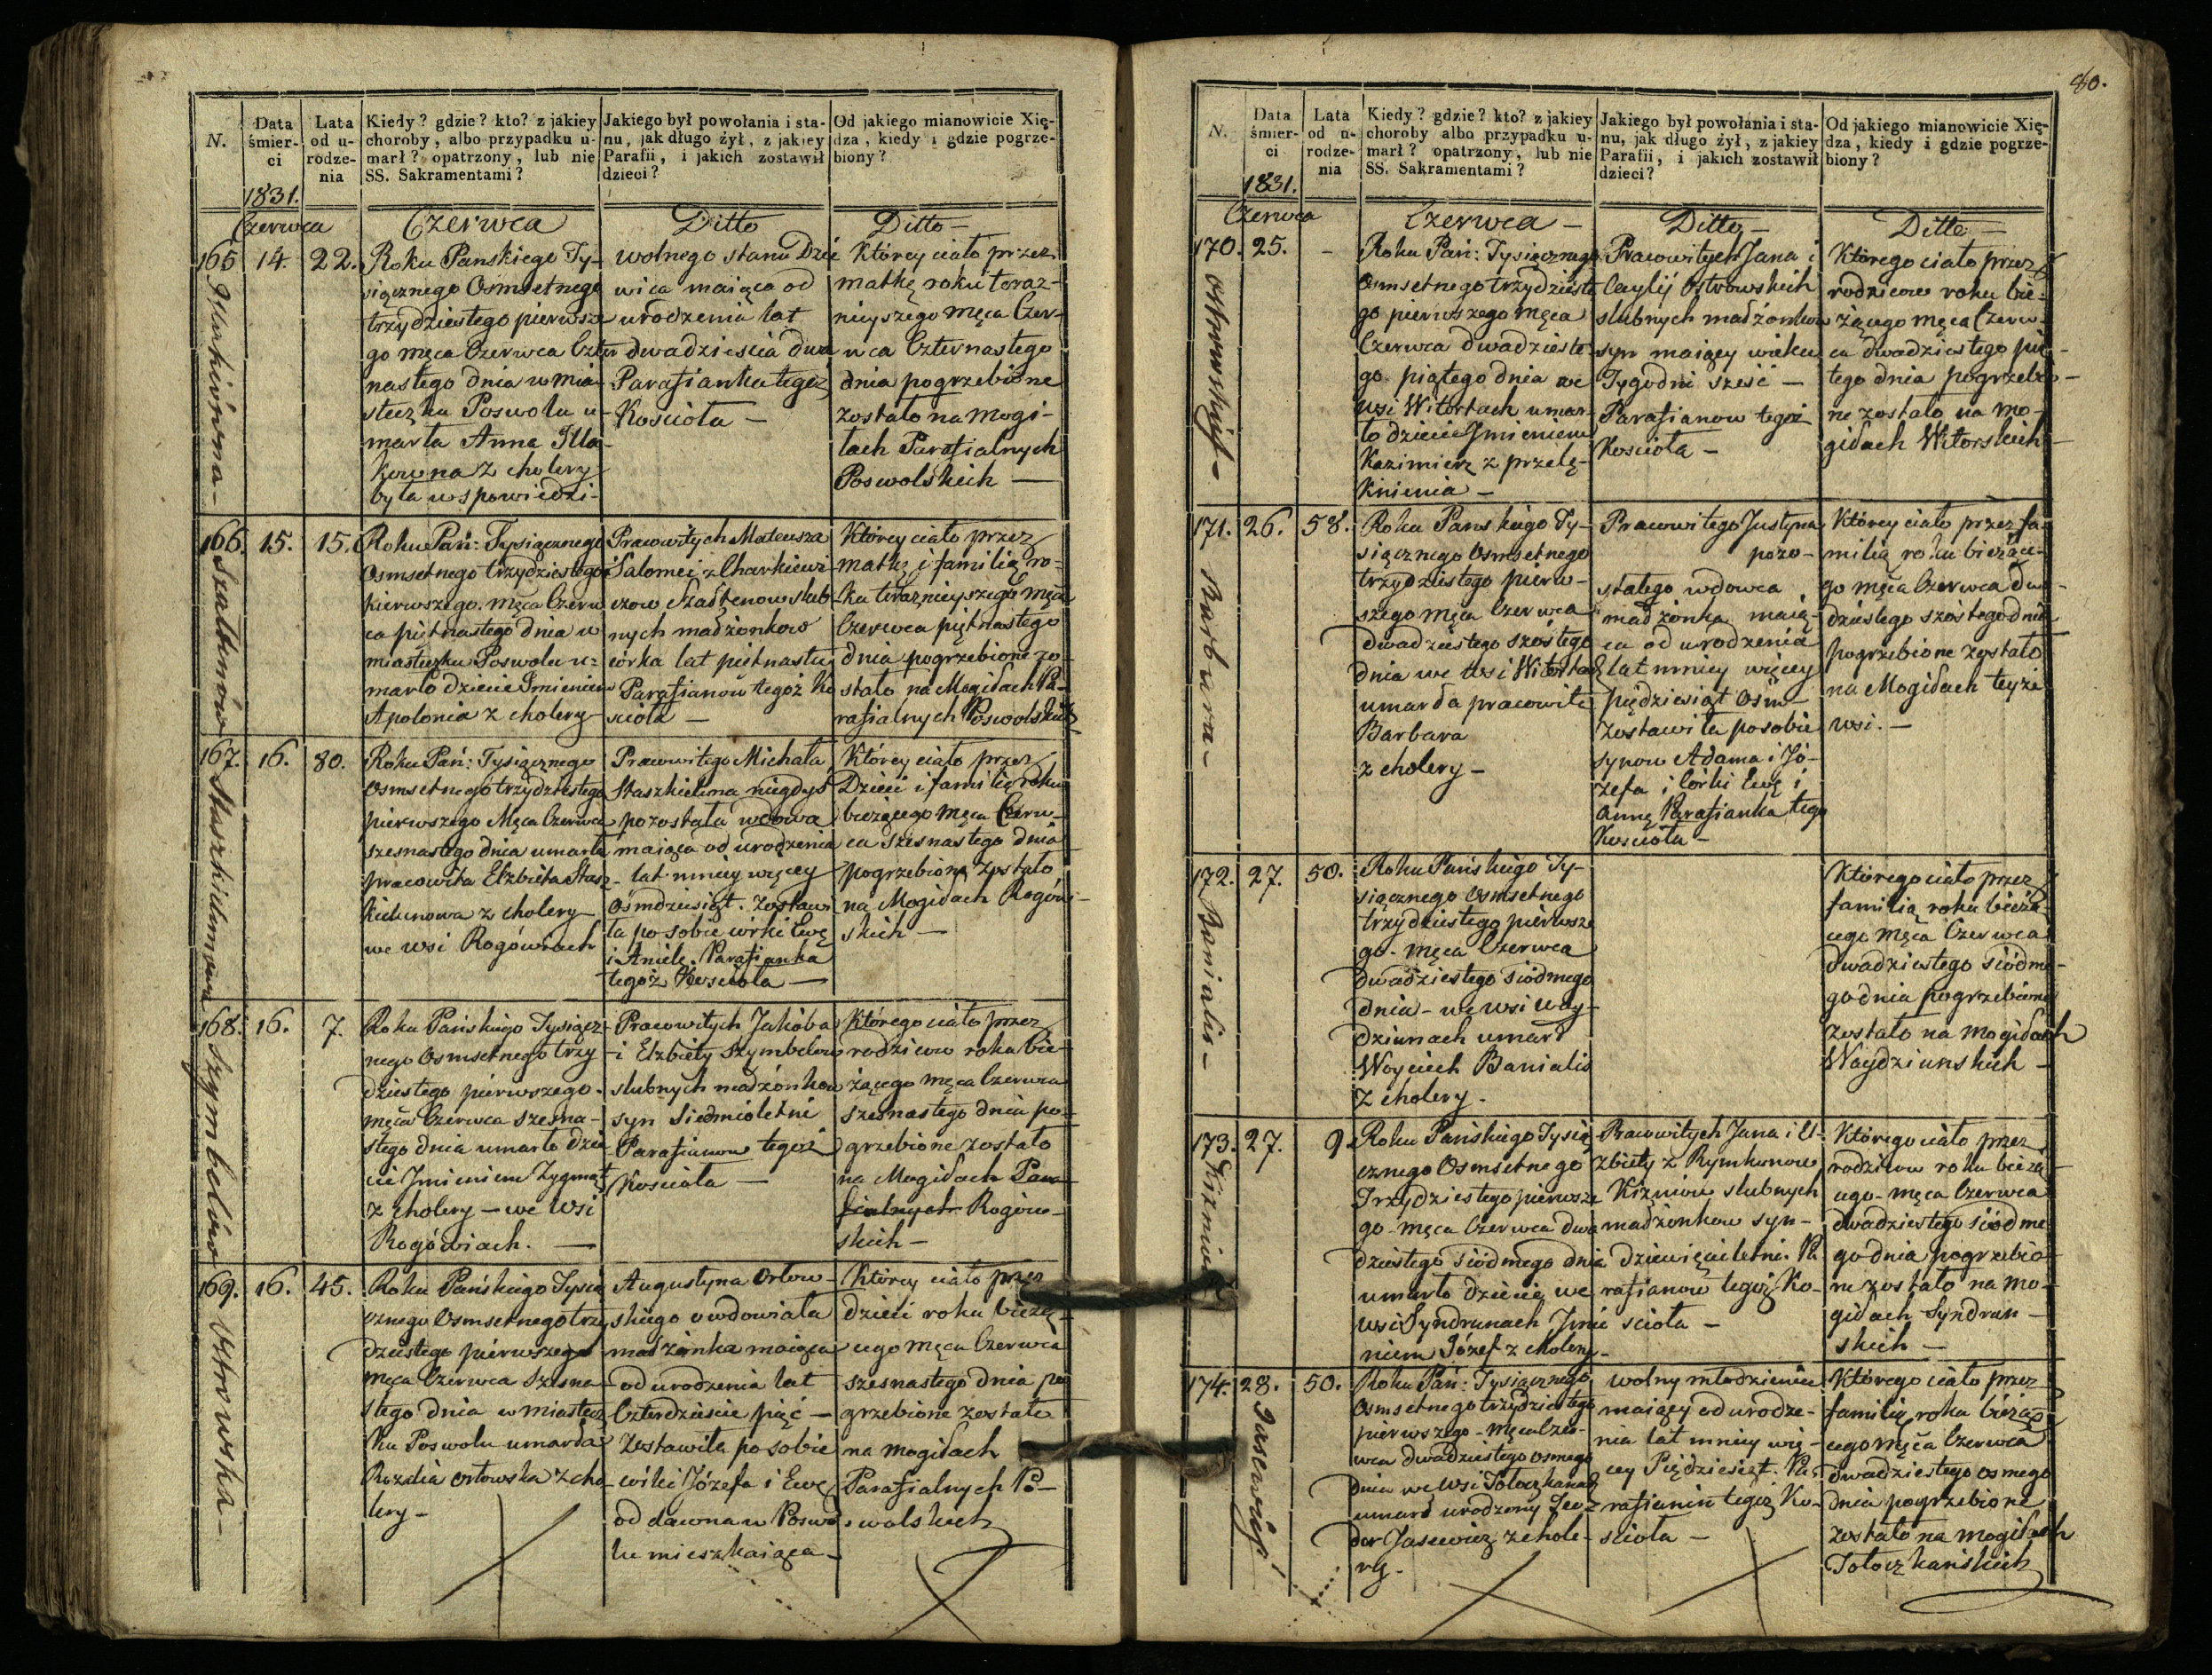 N.
Data śmier-ci
1831.
Lata od u-rodze-nia
Kiedy? gdzie? kto? z jakiey
choroby, albo przypadku u-
marł? opatrzony, lub nie
SS. Sakramentami?
Jakiego był powołania i sta-
nu, jak długo żył, z jakiey
Parafii, i jakich zostawił
dzieci?
Od jakiego mianowicie Xię-
dza, kiedy i gdzie pogrze-
biony?
Czerwca
Czerwca
Ditto
Ditto
165
14.
22.
Roku Panskiego Ty-
siącznego Osmsetnego
trzydziestego pierwsze
go męca Czerwca Czter
nastego dnia w mia
steczku Poswolu u-
marła Anna
z cholery
była u spowiedzi
wolnego stanu Dzie
wica maiąca od
urodzenia lat
dwadzieścia dwa
Parafianka tegoż
Kościoła
Którey ciało przez
matkę roku teraz-
nieyszego męca Czer-
wca Czternastego
dnia pogrzebione
zostało na mogi-
łach Parafialnych
Poswolskich
166.
15.
15.
Roku Pań: Tysiącznego
Osmsetnego trzydziestego
pierwszego męca Czerw
ca piętnastego dnia w
miasteczku Poswolu u-
marło dziecie Imieniem
Apolonia z cholery
Pracowitych Mateusza
i Salomei z Charkiewi
czow
nych małżonkow
córka lat piętnastu
Parafianow tegoż Ko
ścioła
Którey ciało przez
matkę i familię ro-
ku teraznieyszego męca
Czerwca piętnastego
dnia pogrzebione zo-
stało na Mogiłach Pa-
rafialnych Poswolskich
167.
Staszkielunowa
16.
80.
Roku Pań: Tysiącznego
Osmsetnego trzydziestego
pierwszego Męca Czerwca
szesnastego dnia umarła
pracowita Elżbieta Stasz
kielunowa z cholery
we wsi Rogówiach
Pracowitego Michała
Staszkieluna niegdys
pozostała wdowa
maiąca od urodzenia
lat mniey więcey
Ośmdziesiąt. Zostawi
ła po sobie córki Ewę
i Anielę. Parafianka
tegoż Kościoła
Którey ciało przez
Dzieci i familię roku
bieżącego męca Czerw-
ca szesnastego dnia
pogrzebione zostało
na Mogiłach Rogów-
skich
168.
Szymbelów
16.
7.
Roku Pańskiego Tysiącz-
nego Osmsetnego trzy
dziestego pierwszego
męca Czerwca szesna-
stego dnia umarło dzie
cie Imieniem Zygmąt
z cholery we wsi
Rogówiach.
Pracowitych Jakóba
i Elżbiety Szymbelow
slubnych małżonkow
syn Siedmioletni
Parafianow tegoż
Kościoła
Którego ciało przez
rodzicow roku bie-
żącego męca Czerwca
szesnastego dnia po-
grzebione zostało
na Mogiłach Para-
fialnych Rogów-
skich
169.
16.
45.
Roku Pańskiego Tysią
cznego Osmsetnego trzy
dziestego pierwszego
męca Czerwca szesna-
stego dnia w miastecz
ku Poswolu umarła
Rozalia Orłowska z cho
lery
Augustyna Orłow-
skiego owdowiała
małżonka maiąca
od urodzenia lat
Czterdzieście pięć
Zostawiła po sobie
córki Józefa i Ewę
od dawna w Poswo
lu mieszkaiąca
Którey ciało przez
dzieci roku bieżą-
cego męca Czerwca
szesnastego dnia po
grzebione zostało
na mogiłach
Parafialnych Po-
swolskich
80.
N.
Data śmier-ci
1831.
Lata od u-rodze-nia
Kiedy? gdzie? kto? z jakiey
choroby albo przypadku u-
marł? opatrzony, lub nie
SS. Sakramentami?
Jakiego był powołania i sta-
nu, jak długo żył, z jakiey
Parafii, i jakich zostawił
dzieci?
Od jakiego mianowicie Xię-
dza, kiedy i gdzie pogrze-
biony?
Czerwca
Czerwca
Ditto
Ditto
170.
25.
-
Roku Pań: Tysiącznego
Osmsetnego trzydzieste
go pierwszego męca
Czerwca dwadzieste
go piątego dnia we
wsi Witortach umar
ło dziecie Imieniem
Kazimierz z przelę-
knienia
Pracowitych Jana i
Cecylij Ostrowskich
slubnych małżonkow
syn maiący wieku
Tygodni sześć
Parafianow tegoż
Kościoła
Którego ciało przez
rodzicow roku bie-
żącego męca Czerw-
ca dwadziestego pią
tego dnia pogrzebio-
ne zostało na mo-
giłach Witorskich
171.
Barbara
26.
58.
Roku Panskiego Ty-
siącznego Osmsetnego
trzydziestego pierw-
szego męca Czerwca
dwadziestego szostego
dnia we wsi Witortach
umarła pracowita
Barbara
z cholery
Pracowitego Justyna
pozo-
stałego wdowca
małżonka maią-
ca od urodzenia
lat mniey więcey
pięćdziesiąt Ośm
Zostawiła po sobie
synow Adama i Jó-
zefa i Córki Ewę i
Annę Parafianka tego
Kościoła
Którey ciało przez fa-
milią roku bieżące-
go męca Czerwca dwa
dziestego szostego dnia
pogrzebione zostało
na Mogiłach teyże
wsi.
172.
Banialis
27.
50.
Roku Pańskiego Ty-
siącznego Osmsetnego
trzydziestego pierwsze
go męca Czerwca
dwadziestego siódmego
dnia we wsi Way-
dziunach umarł
Woyciech Banialis
z cholery.
Którego ciało przez
familią roku bieżą-
cego męca Czerwca
dwadziestego siódme-
go dnia pogrzebione
zostało na mogiłach
Waydziunskich
173.
27.
9.
Roku Pańskiego Tysią
cznego Osmsetnego
Trzydziestego pierwsze
go męca Czerwca dwa
dziestego siódmego dnia
umarło dziecie we
wsi Syndrunach Imie
niem Józef z cholery
Pracowitych Jana i El-
żbiety z Rymkunow
Kiżniow slubnych
małżonkow syn
dziewięcioletni. Pa
rafianow tegoż Ko-
ścioła
Którego ciało przez
rodzicow roku bieżą
cego męca Czerwca
dwadziestego siódme
go dnia pogrzebio-
ne zostało na mo-
giłach Syndrun-
skich
174.
28.
50.
Roku Pań: Tysiącznego
Osmsetnego trzydziestego
pierwszego męca Czer-
wca dwadziestego osmego
dnia we wsi Tołoczkanach
umarł urodzony Teo-
dor Jasewicz z chole-
ry.
wolny młodzieniec
maiący od urodze-
nia lat mniey wię-
cey Pięćdziesiąt. Pa-
rafianin tegoż Ko-
ścioła
Którego ciało przez
familię roku bieżą-
cego męca Czerwca
dwadziestego osmego
dnia pogrzebione
zostało na mogiłach
Tołoczkańskich